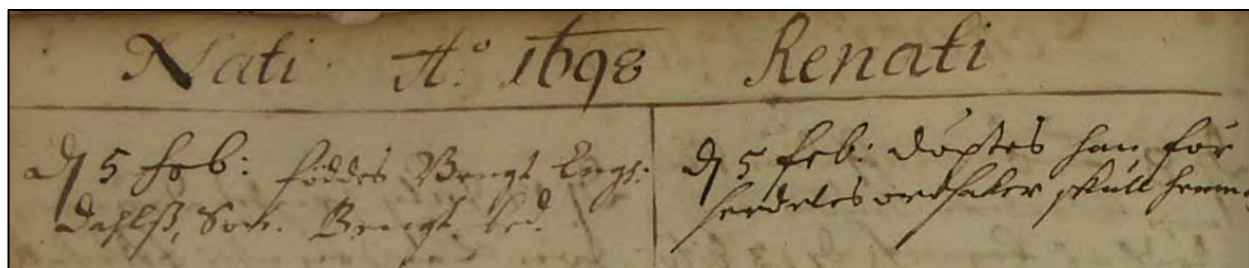 Nati A:o 1698 Renati
d 5 Feb: föddes Bengt Engs:
dahls, Son. Bengt
d 5 Feb: döptes han för
skull hemma